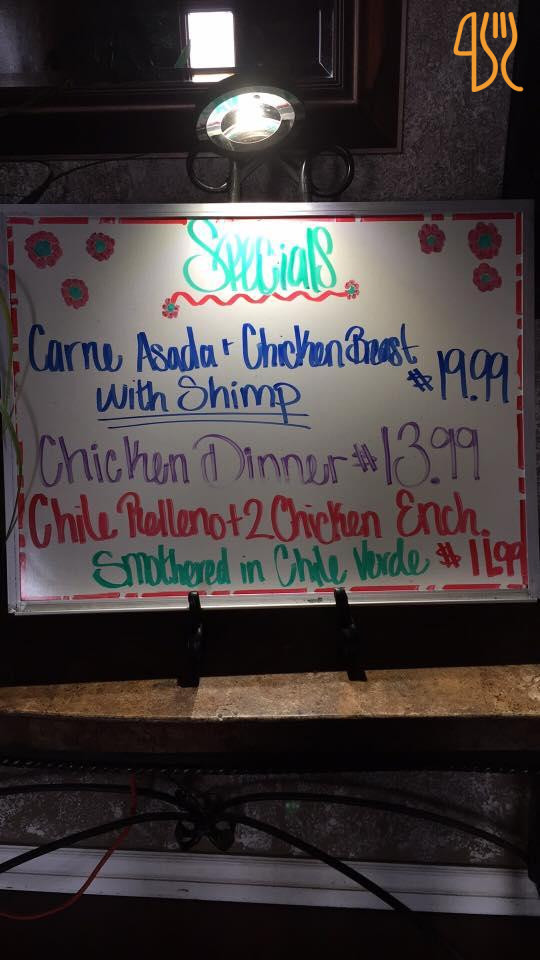 Specials
Carne Asada + Chicken Breast
with Shimp $19.99
Chicken Dinner $13.99
Chile Relleno + 2 Chicken Ench.
Smothered in Chile Verde $11.99